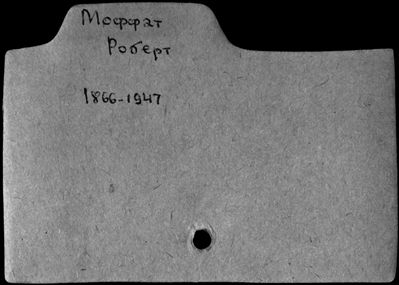 Моффат
Роберт
1866-1947